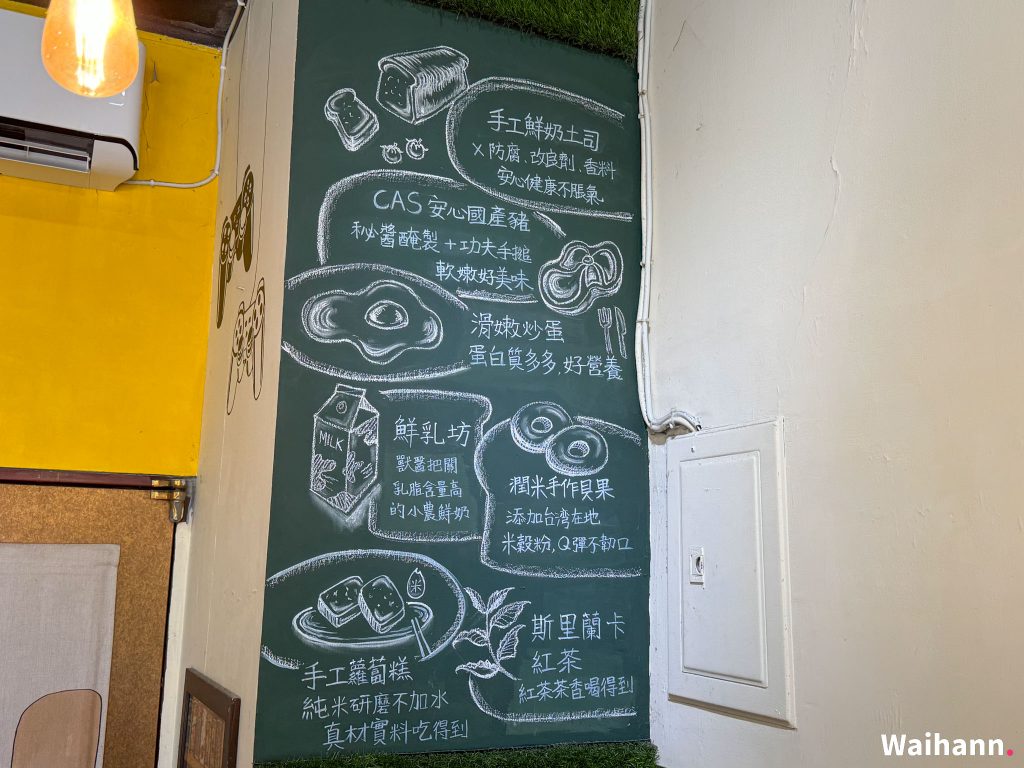 手工鮮奶土司
X防腐、改良劑、香料
安心健康不脹氣
CAS 安心國產豬
秘醬醃製+功夫手搥
軟嫩好美味
滑嫩炒蛋
蛋白質多多,好營養
MILK
鮮乳坊
獸醫把關
乳脂含量高
的小農鮮奶
潤米手作貝果
添加台湾在地
米穀粉,Q彈不韌口
米
手工蘿蔔糕
純米研磨不加水
真材實料吃得到
斯里蘭卡
紅茶
紅茶茶香喝得到
Waihann.